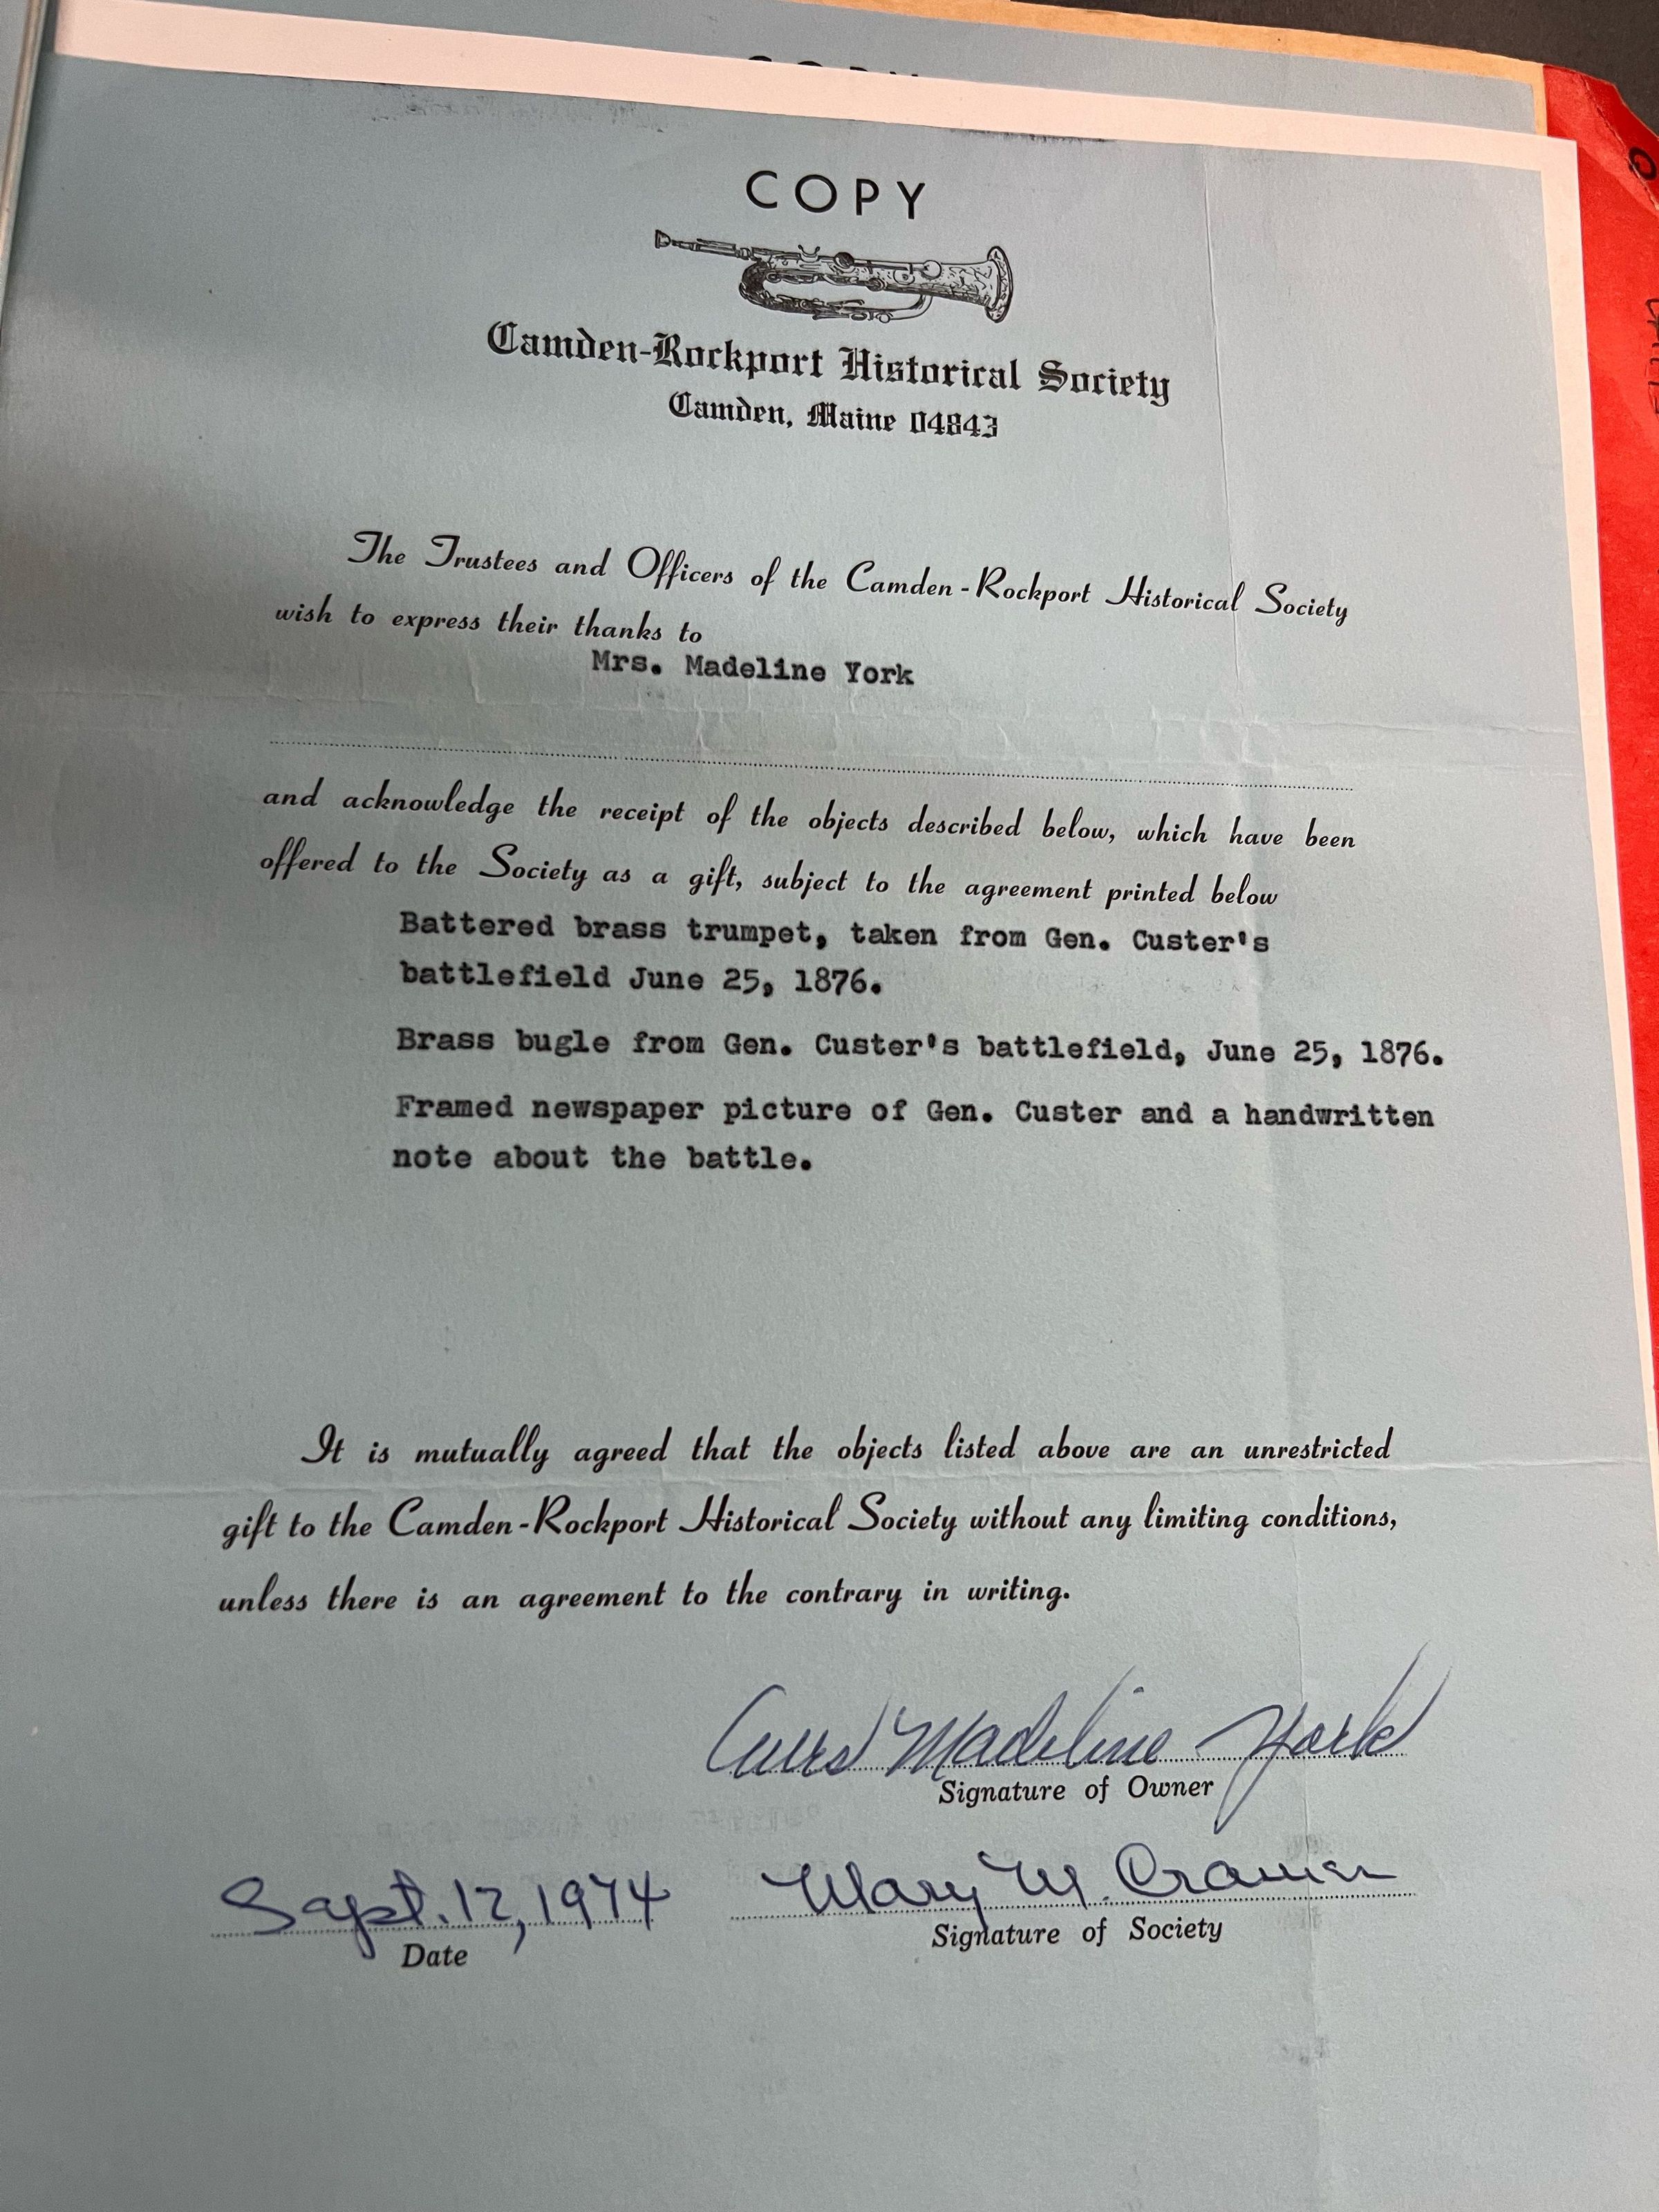 COPY
Camden-Rockport Historical Society
Camden, Maine 04843
The Trustees and Officers of the Camden-Rockport Historical Society
wish to express their thanks to
Mrs. Madeline York
and acknowledge the receipt of the objects described below, which have been
offered to the Society as a gift, subject to the agreement printed below
Battered brass trumpet, taken from Gen. Custer's
battlefield June 25, 1876.
Brass bugle from Gen. Custer's battlefield, June 25, 1876.
Framed newspaper picture of Gen. Custer and a handwritten
note about the battle.
It is mutually agreed that the objects listed above are an unrestricted
gift to the Camden-Rockport Historical Society without any limiting conditions,
unless there is an agreement to the contrary in writing.
Mrs Madeline York
Signature of Owner
Sept. 12, 1974
Mary M. Cramer
Date
Signature of Society